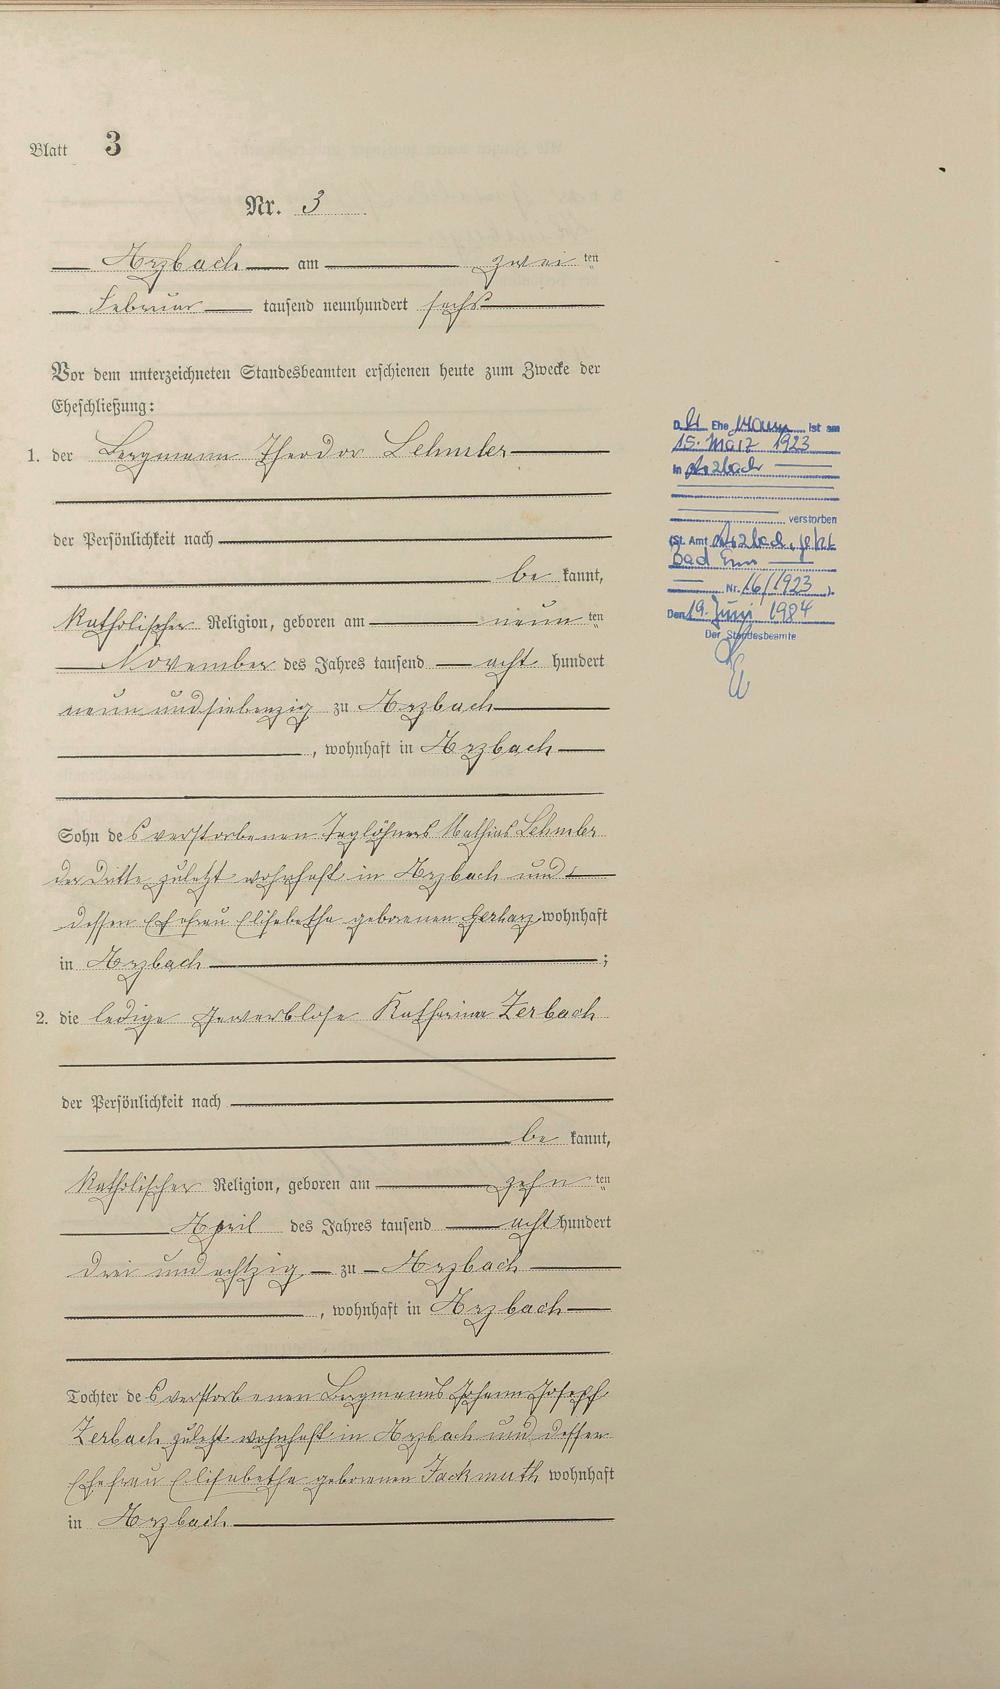 Blatt 3
Nr. 3
Arzbach am zwei ten
Februar tausend neunhundert sechs
Vor dem unterzeichneten Standesbeamten erschienen heute zum Zwecke der
Eheschließung:
1. der Bergmann Theodor Lehmler
der Persönlichkeit nach
be kannt,
katholischer Religion, geboren am neun ten
November des Jahres tausend acht hundert
neun und siebenzig zu Arzbach
, wohnhaft in Arzbach
Sohn des verstorbenen Taglöhners Mathias Lehmler
der Dritte zuletzt wohnhaft in Arzbach und
dessen Ehefrau Elisabetha geborenen Gerharz wohnhaft
in Arzbach ;
2. die ledige Gewerblose Katharina Zerbach
der Persönlichkeit nach
be kannt,
katholischer Religion, geboren am zehn ten
April des Jahres tausend acht hundert
drei und achtzig zu Arzbach
, wohnhaft in Arzbach
Tochter des verstorbenen Bergmanns Johann Joseph
Zerbach zuletzt wohnhaft in Arzbach und dessen
Ehefrau Elisabetha geborenen Fackmuth wohnhaft
in Arzbach
D er Ehe mann ist am
15. März 1923
in Arzbach
verstorben
(St. Amt Arzbach, jetzt
Bad Ems
Nr. 16/1923 ).
Den 19. Juni 1984
Der Standesbeamte